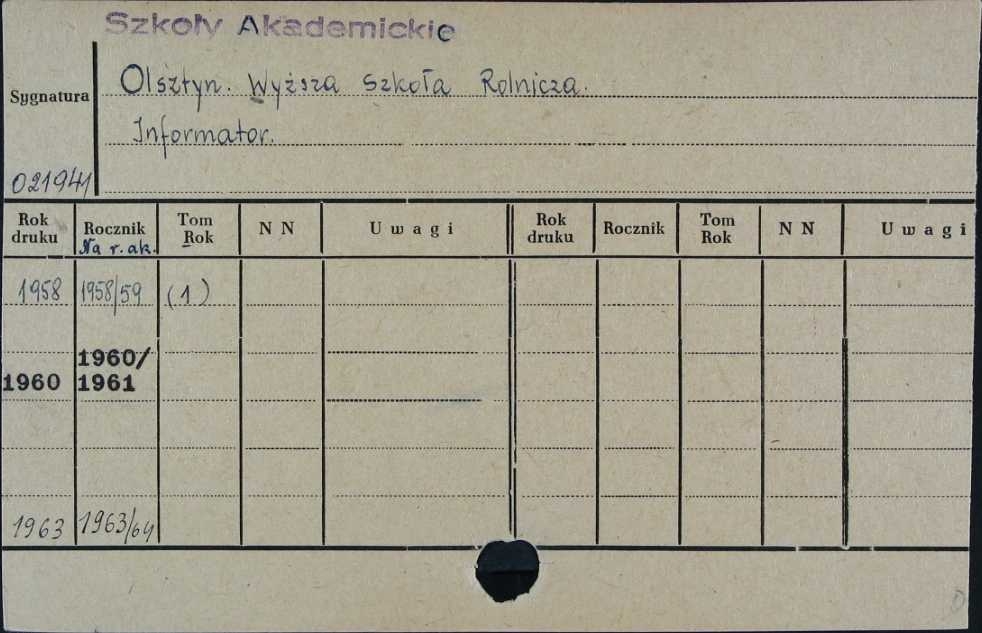 Szkoły Akademickie
Olsztyn. Wyższa Szkoła Rolnicza.
Sygnatura
Informator.
021941
Rok druku Rocznik Tom Rok N N Uwagi Rok druku Rocznik Tom Rok N N Uwagi
Na r. ak.
1958 1958/59 (1)
1960/
1960 1961
1963 1963/64